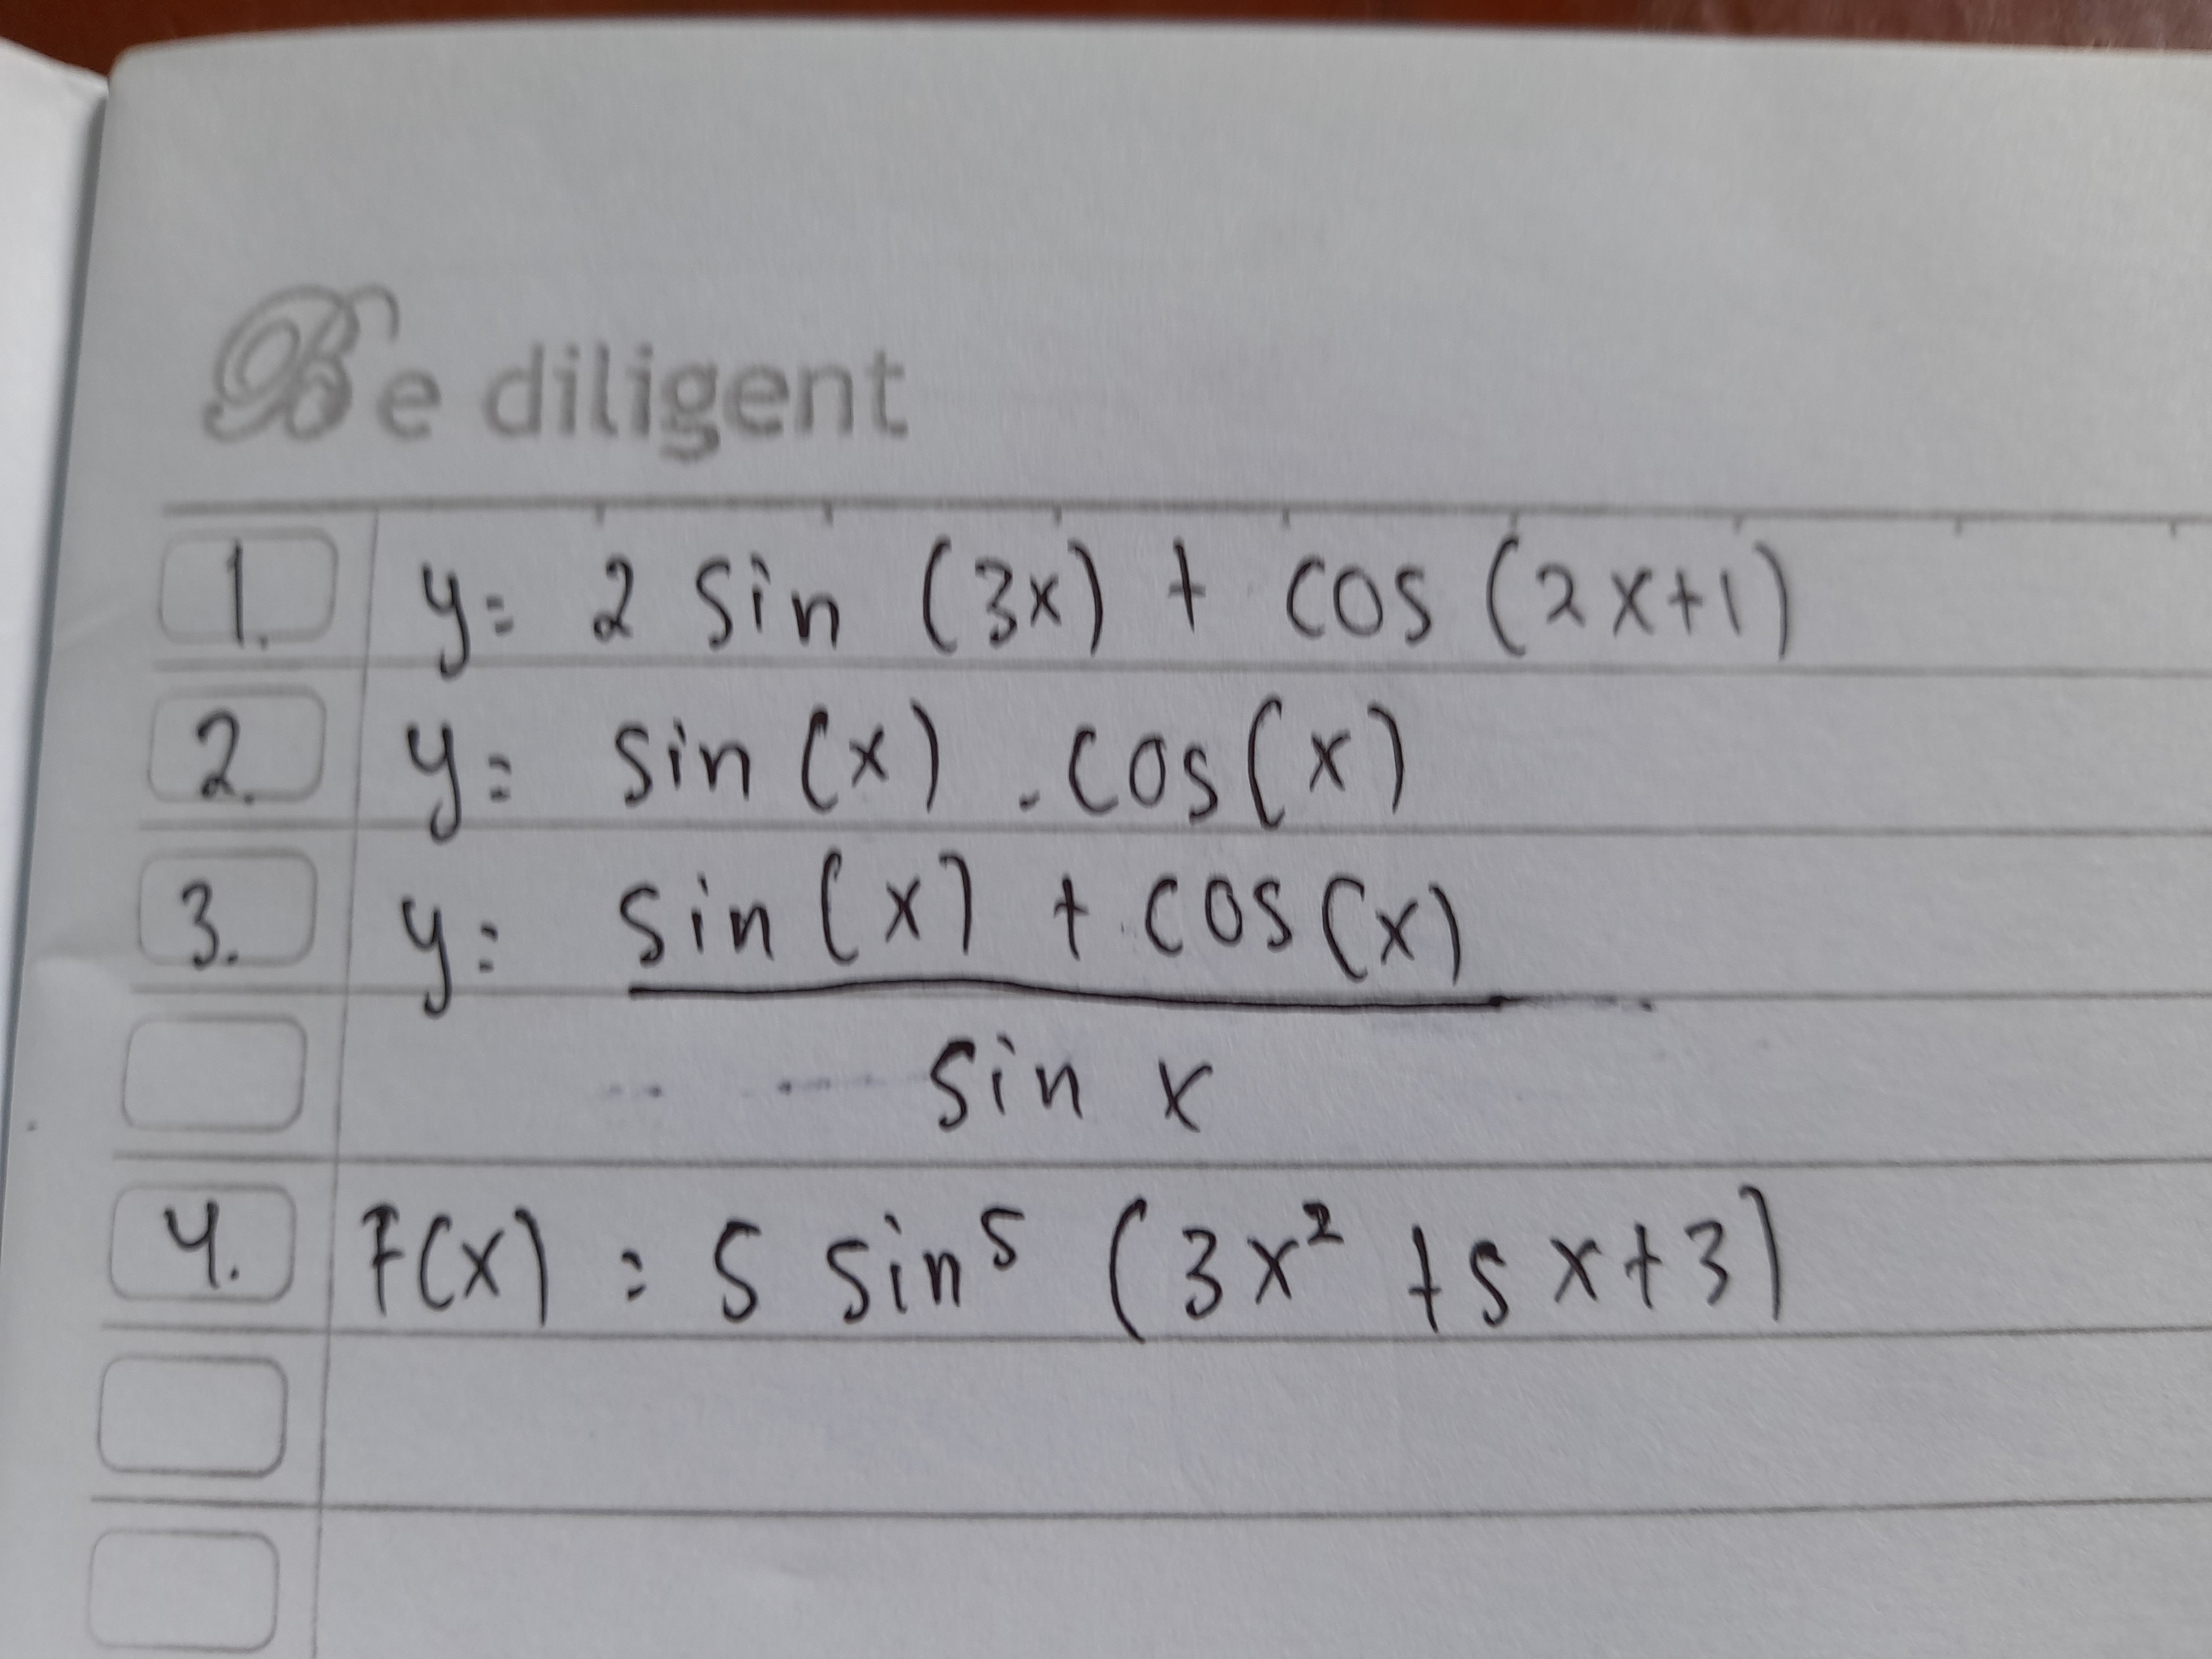 Be diligent
1. y= 2 sin (3x) + cos (2x+1)
2. y= sin (x) . cos (x)
3. y= sin (x) + cos (x)
sin x
4. f(x) = 5 sin⁵ (3x² + 5x+3)